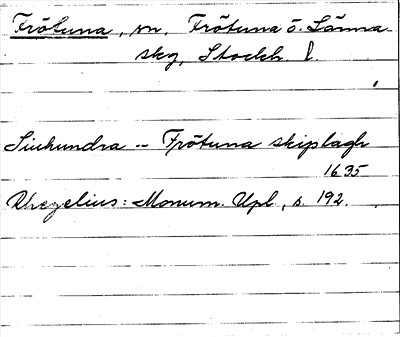 Frötuna, sn. Frötuna o. Länna
skg, Stockh. l.
Siuhundra -- Frötuna skiplagh
1635
Rhezelius: Monum. Upl., s. 192.